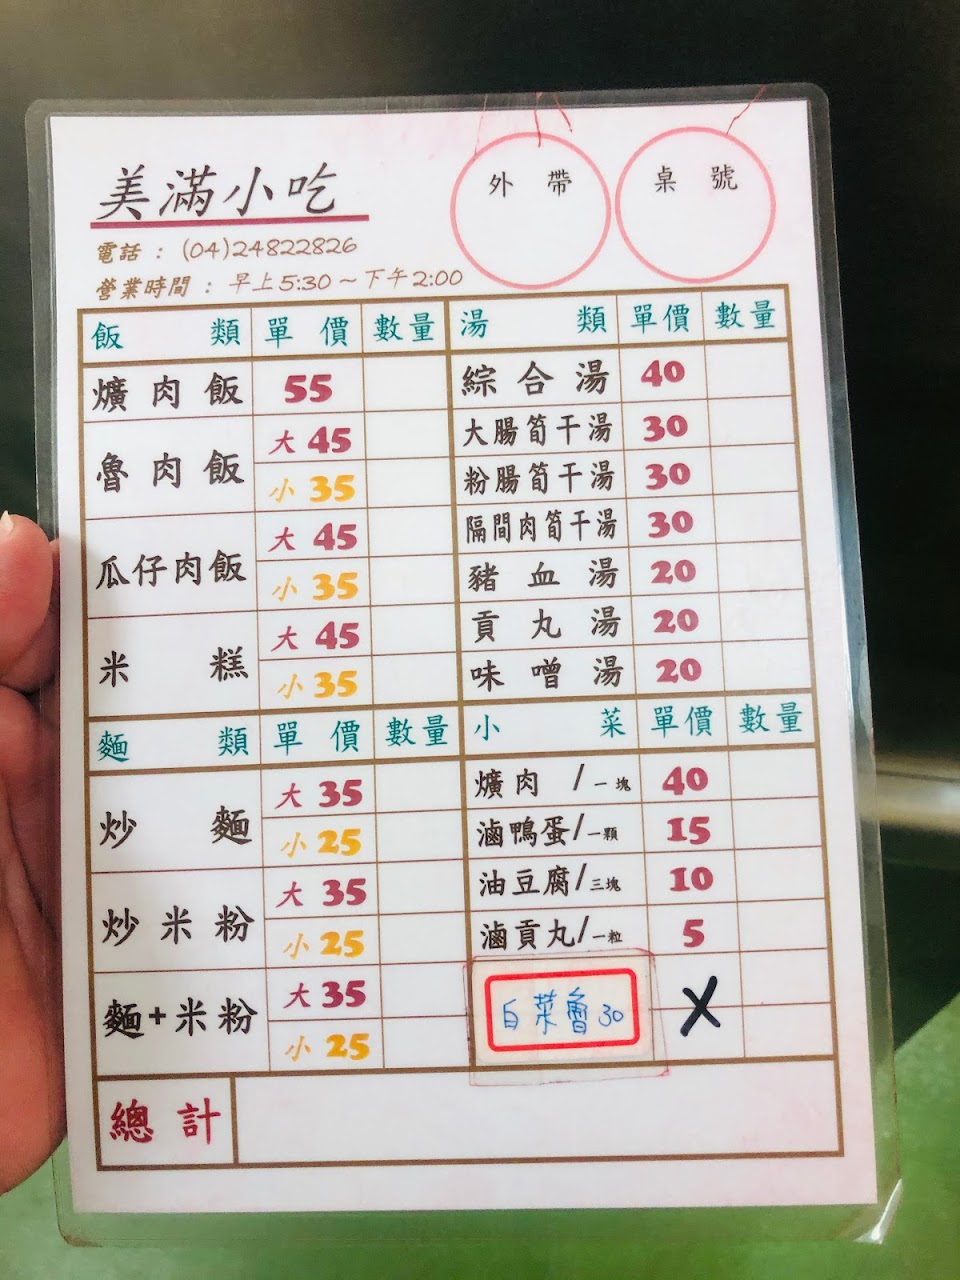 美滿小吃
外帶
桌號
電話：(04)24822826
營業時間：早上5:30～下午2:00
飯類 單價 數量
爌肉飯 55
魯肉飯 大 45
小 35
瓜仔肉飯 大 45
小 35
米糕 大 45
小 35
麵類 單價 數量
炒麵 大 35
小 25
炒米粉 大 35
小 25
麵+米粉 大 35
小 25
湯類 單價 數量
綜合湯 40
大腸筍干湯 30
粉腸筍干湯 30
隔間肉筍干湯 30
豬血湯 20
貢丸湯 20
味噌湯 20
小菜 單價 數量
爌肉/一塊 40
滷鴨蛋/一顆 15
油豆腐/三塊 10
滷貢丸/一粒 5
白菜魯30 X
總計